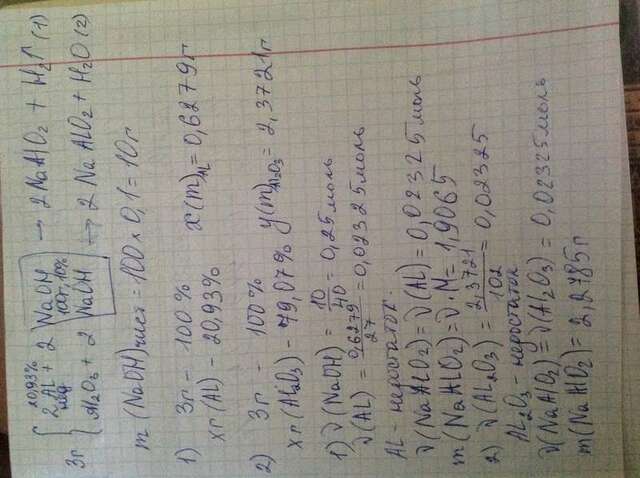 20,93%
3г { 2Al + 2 NaOH → 2NaAlO2 + H2↑ (1)
100г, 10%
Al2O3 + 2 NaOH → 2NaAlO2 + H2O (2)
m (NaOH)чист = 100 × 0,1 = 10г
1) 3г – 100%
xг (Al) – 20,93% x(m)Al = 0,6279г
2) 3г – 100%
xг (Al2O3) – 79,07% y(m)Al2O3 = 2,3721г
1) ν(NaOH) = 10/40 = 0,25 моль
ν(Al) = 0,6279/27 = 0,02325 моль
Al – недостаток.
ν(NaAlO2) = ν(Al) = 0,02325 моль
m(NaAlO2) = ν·M = 1,9065
2) ν(Al2O3) = 2,3721/102 = 0,02325
Al2O3 – недостаток
ν(NaAlO2) = ν(Al2O3) = 0,02325 моль
m(NaAlO2) = 2,2785г